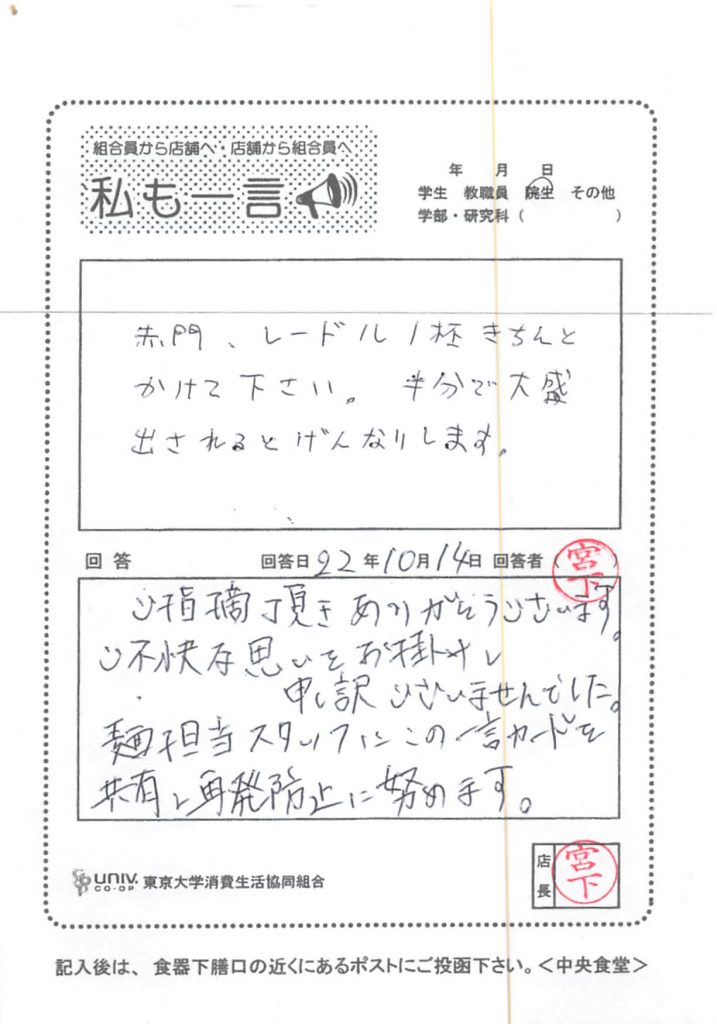 組合員から店舗へ・店舗から組合員へ
私も一言
年 月 日
学生 教職員 院生 その他
学部・研究科 ( )
赤門、レードル1杯きちんと
かけて下さい。半分で大盛
出されるとげんなりします。
回答 回答日 22年10月14日 回答者 (宮下)
ご指摘頂きありがとうございます。
ご不快な思いをお掛けし
申し訳ございませんでした。
麺担当スタッフにこの一言カードを
共有し再発防止に努めます。
店長 宮下
UNIV. CO-OP 東京大学消費生活協同組合
記入後は、食器下膳口の近くにあるポストにご投函下さい。<中央食堂>